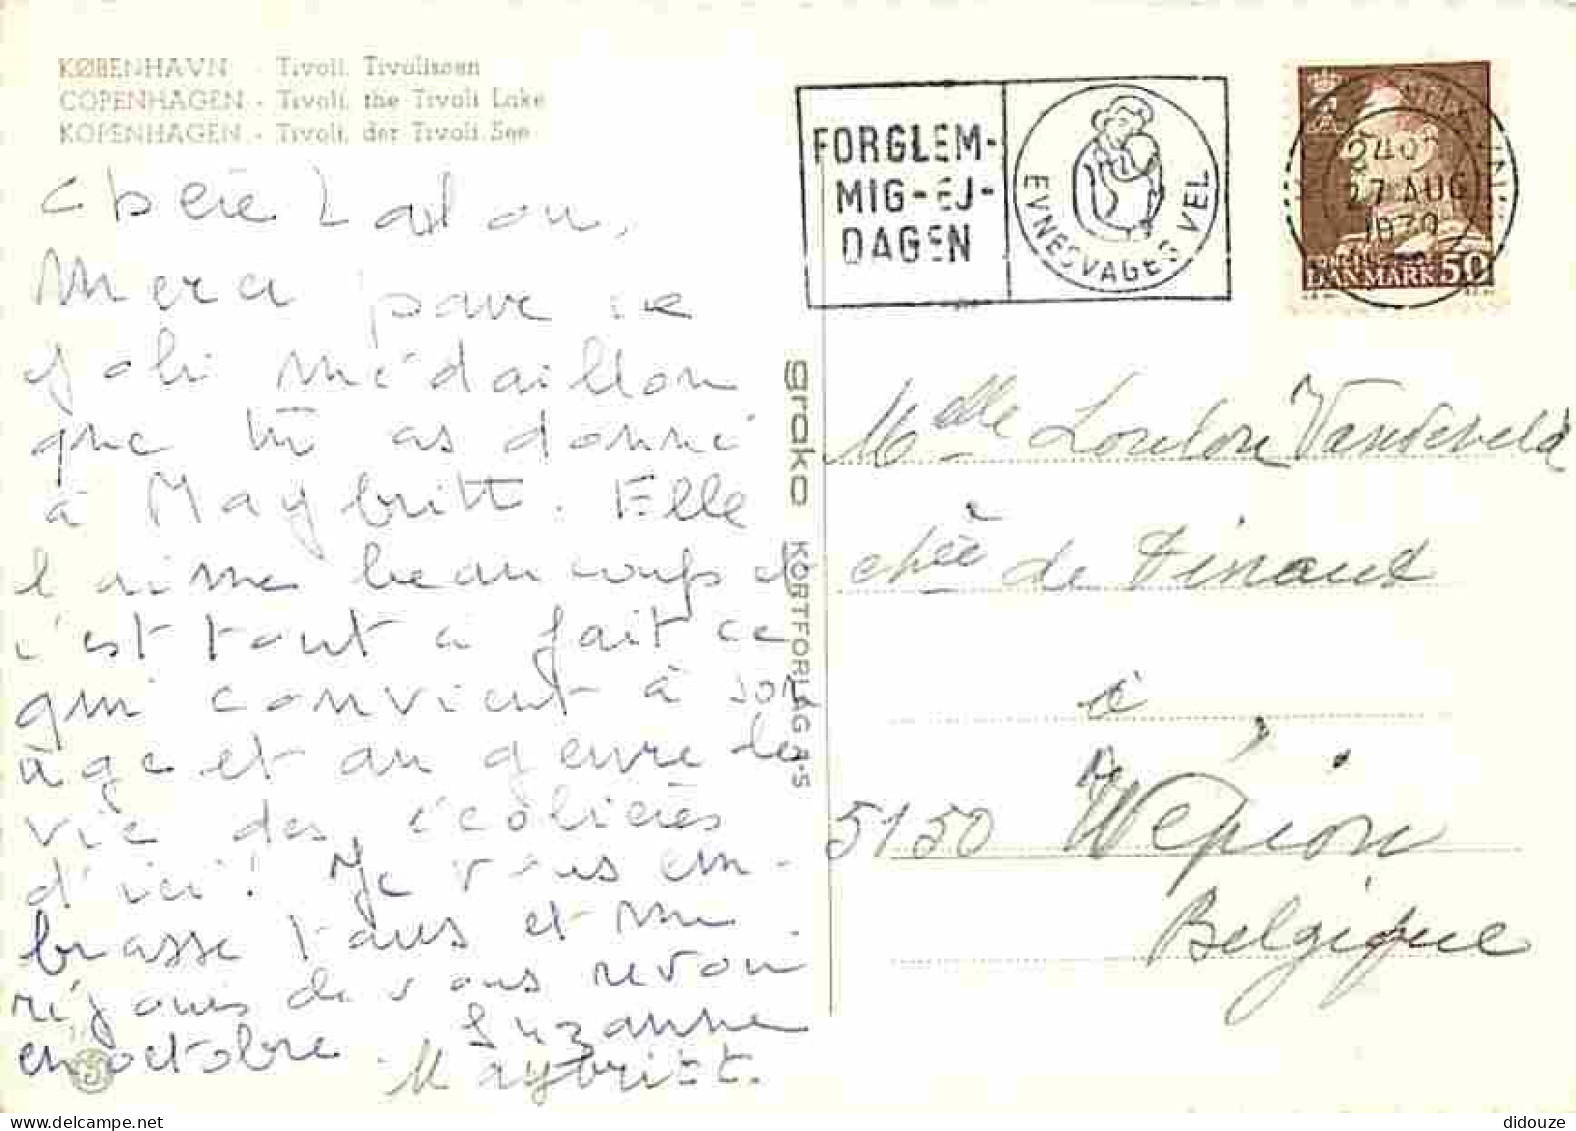 KØBENHAVN - Tivoli. Tivolisøen
COPENHAGEN - Tivoli. the Tivoli Lake
KOPENHAGEN - Tivoli. der Tivoli See
Chère Loulou,
Merci pour ce
joli médaillon
que tu as donné
à Maybritt. Elle
l'aime beaucoup et
c'est tout à fait ce
qui convient à son
âge et au genre de
vie des écolières
d'ici! Je vous em-
brasse tous et me
réjouis de vous revoir
en octobre Suzanne
Maybritt.
grako KORTFORLAG A-S
FORGLEM-
MIG-EJ-
DAGEN
EVNESVAGES VEL
27 AUG
DANMARK 50
Melle Loulou Vandeveld
chée de Dinant
à
5150 Wépion
Belgique
didouze